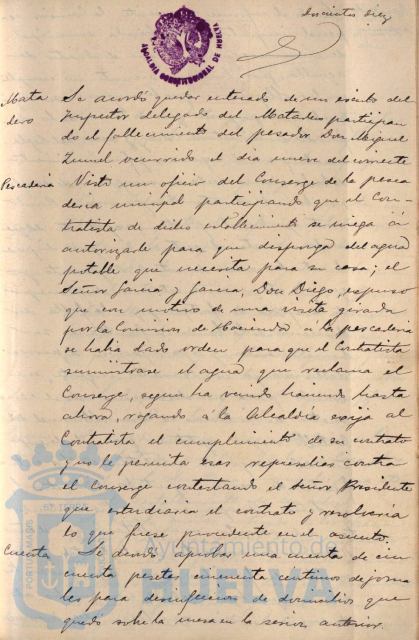 Doscientos diez
ALCALDÍA CONSTITUCIONAL DE HUELVA
Mata Se acordó quedar enterado de un escrito del
dero Inspector delegado del Matadero participan
do el fallecimiento del pesador Don Miguel
ocurrido el día nueve del corriente
Pescaderia Visto un oficio del Conserge de la pesca
deria municipal participando que el Con-
tratista de dicho establecimiento se niega á
autorizarle para que disponga del agua
potable que necesita para su casa; el
Señor Garcia y Garcia, Don Diego, expuso
que con motivo de una visita girada
por la Comision de Hacienda á la pescaderia
se habia dado orden para que el Contratista
suministrase el agua que reclama el
Conserge, segun ha venido haciendo hasta
ahora, rogando á la Alcaldía exija al
Contratista el cumplimiento de su contrato
y no le permita esas represalias contra
el Conserge contestando el Señor Presidente
que estudiaria el contrato y resolveria
lo que fuese procedente en el asunto.
Cuenta Se acordó aprobar una cuenta de cin
cuenta pesetas cincuenta centimos de jorna
les para desinfeccion de domicilios que
quedó sobre la mesa en la sesion anterior.
PORTUS MARIS
Ayuntamiento de
HUELVA